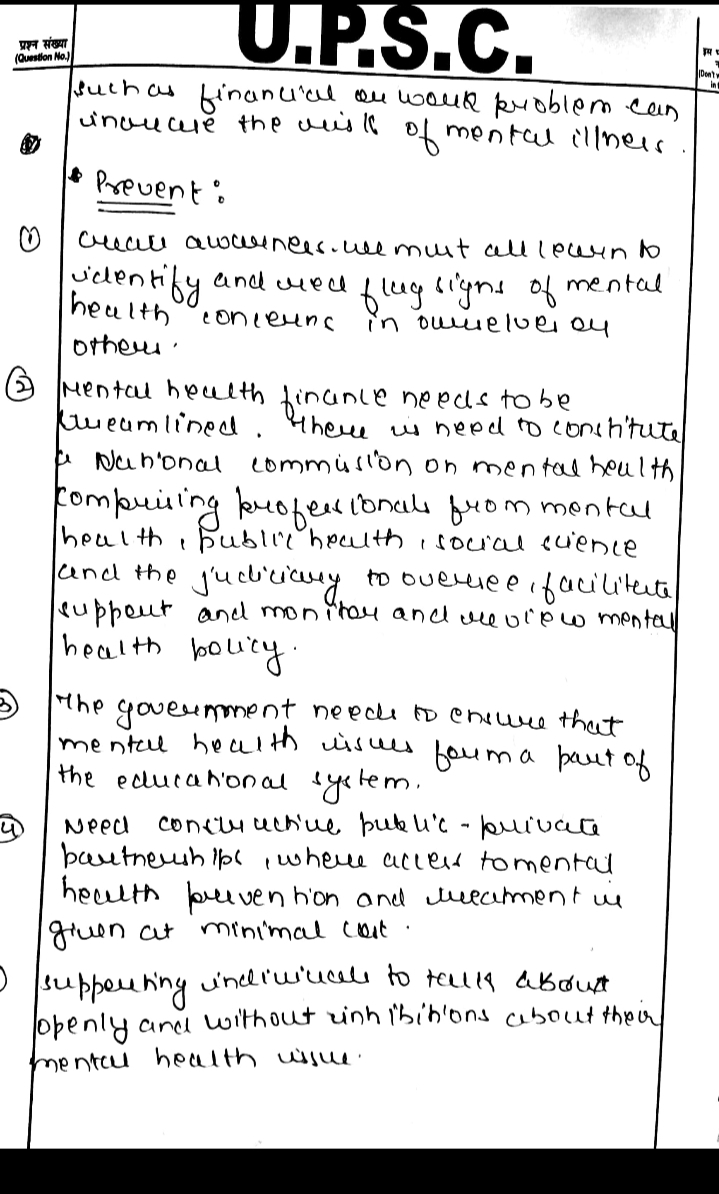 U.P.S.C.
प्रश्न संख्या
(Question No.)
such as financial or work problem can
increase the risk of mental illness.
• Prevent :
① create awareness. we must all learn to
identify and red flag signs of mental
health concerns in ourselves or
others.
② Mental health finance needs to be
streamlined. There is need to constitute
a National commission on mental health
comprising professionals from mental
health, public health, social science
and the judiciary to oversee, facilitate
support and monitor and review mental
health policy.
③ The government needs to ensure that
mental health issues form a part of
the educational system.
④ Need constructive public - private
partnerships, where access to mental
health prevention and treatment is
given at minimal cost.
supporting individuals to talk about
openly and without inhibitions about their
mental health issue.